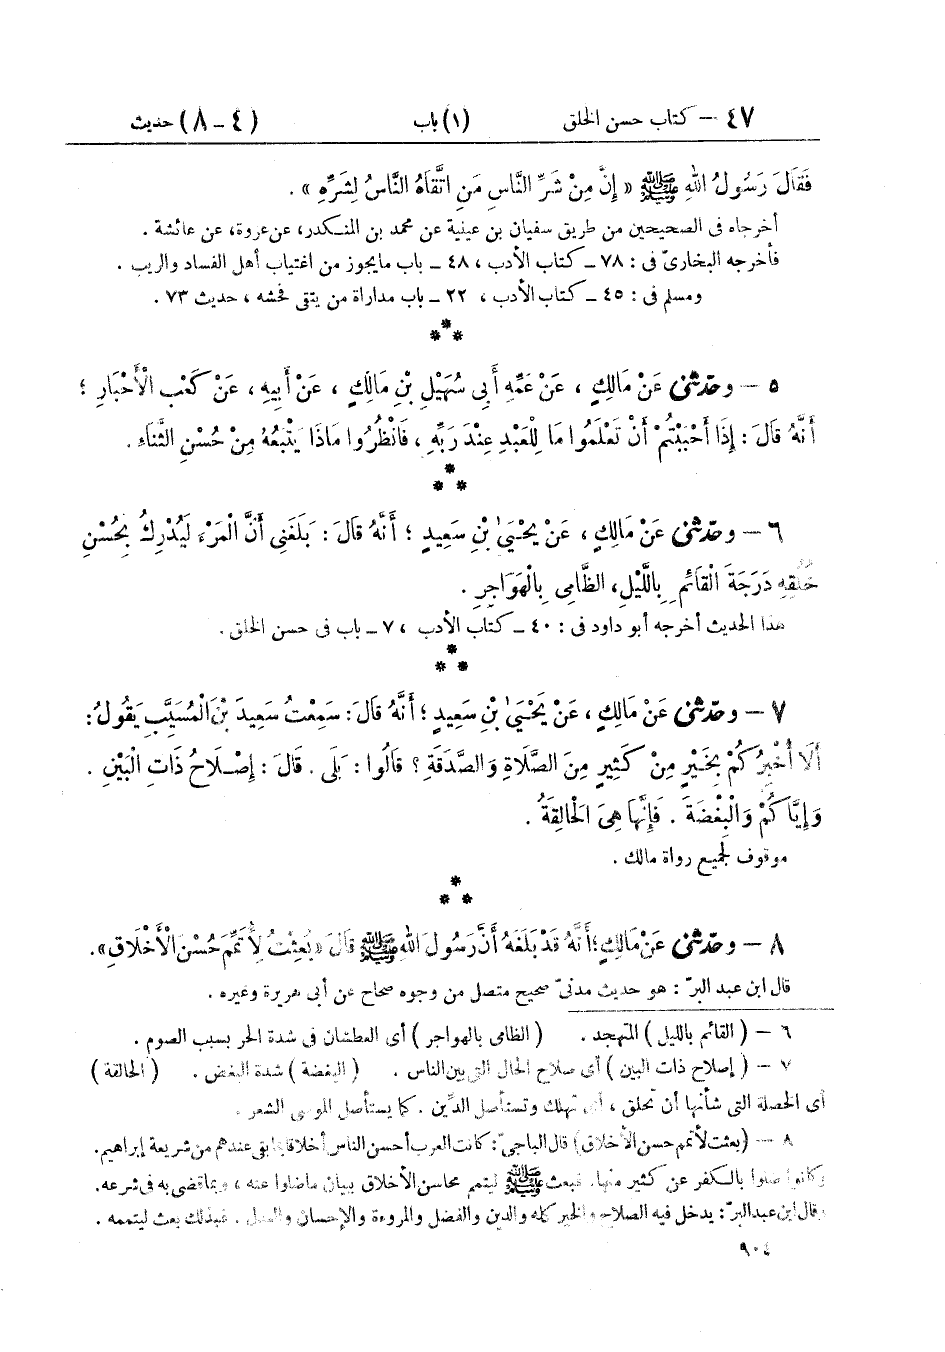 ٤٧ – كتاب حسن الخلق (١) باب (٤ – ٨) حديث
فَقَالَ رَسُولُ اللهِ ﷺ « إِنَّ مِنْ شَرِّ النَّاسِ مَنِ اتَّقَاهُ النَّاسُ لِشَرِّهِ » .
أخرجاه فى الصحيحين من طريق سفيان بن عيينة عن محمد بن المنكدر، عن عروة، عن عائشة .
فأخرجه البخارىّ فى : ٧٨ – كتاب الأدب ، ٤٨ – باب مايجوز من اغتياب أهل الفساد والريب .
ومسلم فى : ٤٥ – كتاب الأدب ، ٢٢ – باب مداراة من يتقى فحشه ، حديث ٧٣ .
***
٥ – وحدّثنى عَنْ مَالِكٍ ، عَنْ عَمِّهِ أَبِى سُهَيْلِ بْنِ مَالِكٍ ، عَنْ أَبِيهِ ، عَنْ كَعْبِ الْأَحْبَارِ ؛
أَنَّهُ قَالَ : إِذَا أَحْبَبْتُمْ أَنْ تَعْلَمُوا مَا لِلْعَبْدِ عِنْدَ رَبِّهِ ، فَانْظُرُوا مَاذَا يَتْبَعُهُ مِنْ حُسْنِ الثَّنَاءِ .
***
٦ – وحدّثنى عَنْ مَالِكٍ ، عَنْ يَحْيَىٰ بْنِ سَعِيدٍ ؛ أَنَّهُ قَالَ : بَلَغَنِى أَنَّ الْمَرْءَ لَيُدْرِكُ بِحُسْنِ
خُلُقِهِ دَرَجَةَ الْقَائِمِ بِاللَّيْلِ، الظَّامِى بِالْهَوَاجِرِ .
هذا الحديث أخرجه أبو داود فى : ٤٠ – كتاب الأدب ، ٧ – باب فى حسن الخلق .
***
٧ – وحدّثنى عَنْ مَالِكٍ ، عَنْ يَحْيَىٰ بْنِ سَعِيدٍ ؛ أَنَّهُ قَالَ : سَمِعْتُ سَعِيدَ بْنَ الْمُسَيَّبِ يَقُولُ:
أَلَا أُخْبِرُكُمْ بِخَيْرٍ مِنْ كَثِيرٍ مِنَ الصَّلَاةِ وَالصَّدَقَةِ ؟ قَالُوا : بَلَى . قَالَ : إِصْلَاحُ ذَاتِ الْبَيْنِ .
وَإِيَّاكُمْ وَالْبِغْضَةَ . فَإِنَّهَا هِىَ الْحَالِقَةُ .
موقوف لجميع رواة مالك .
***
٨ – وحدّثنى عَنْ مَالِكٍ ؛ أَنَّهُ قَدْ بَلَغَهُ أَنَّ رَسُولَ اللهِ ﷺ قَالَ « بُعِثْتُ لِأُتَمِّمَ حُسْنَ الْأَخْلَاقِ».
قال ابن عبد البرّ : هو حديث مدنىّ صحيح متصل من وجوه صحاح عن أبى هريرة وغيره .
٦ – ( القائم بالليل ) المتهجد . ( الظامى بالهواجر ) أى العطشان فى شدة الحر بسبب الصوم .
٧ – ( إصلاح ذات البين ) أى صلاح الحال التى بين الناس . ( البغضة ) شدة البغض . ( الحالقة )
أى الخصلة التى شأنها أن تحلق ، أى تهلك وتستأصل الدِّين . كما يستأصل الموسى الشعر .
٨ – (بعثت لأتمم حسن الأخلاق) قال الباجىّ: كانت العرب أحسن الناس أخلاقا بما بقى عندهم من شريعة إبراهيم.
وكانوا ضلوا بالكفر عن كثير منها. فبعث ﷺ ليتمم محاسن الأخلاق ببيان ماضلوا عنه ، وبما قضى به فى شرعه.
وقال ابن عبد البرّ: يدخل فيه الصلاح والخير كله والدين والفضل والمروءة والإحسان والعدل . فبذلك بعث ليتممه .
٩٠٤